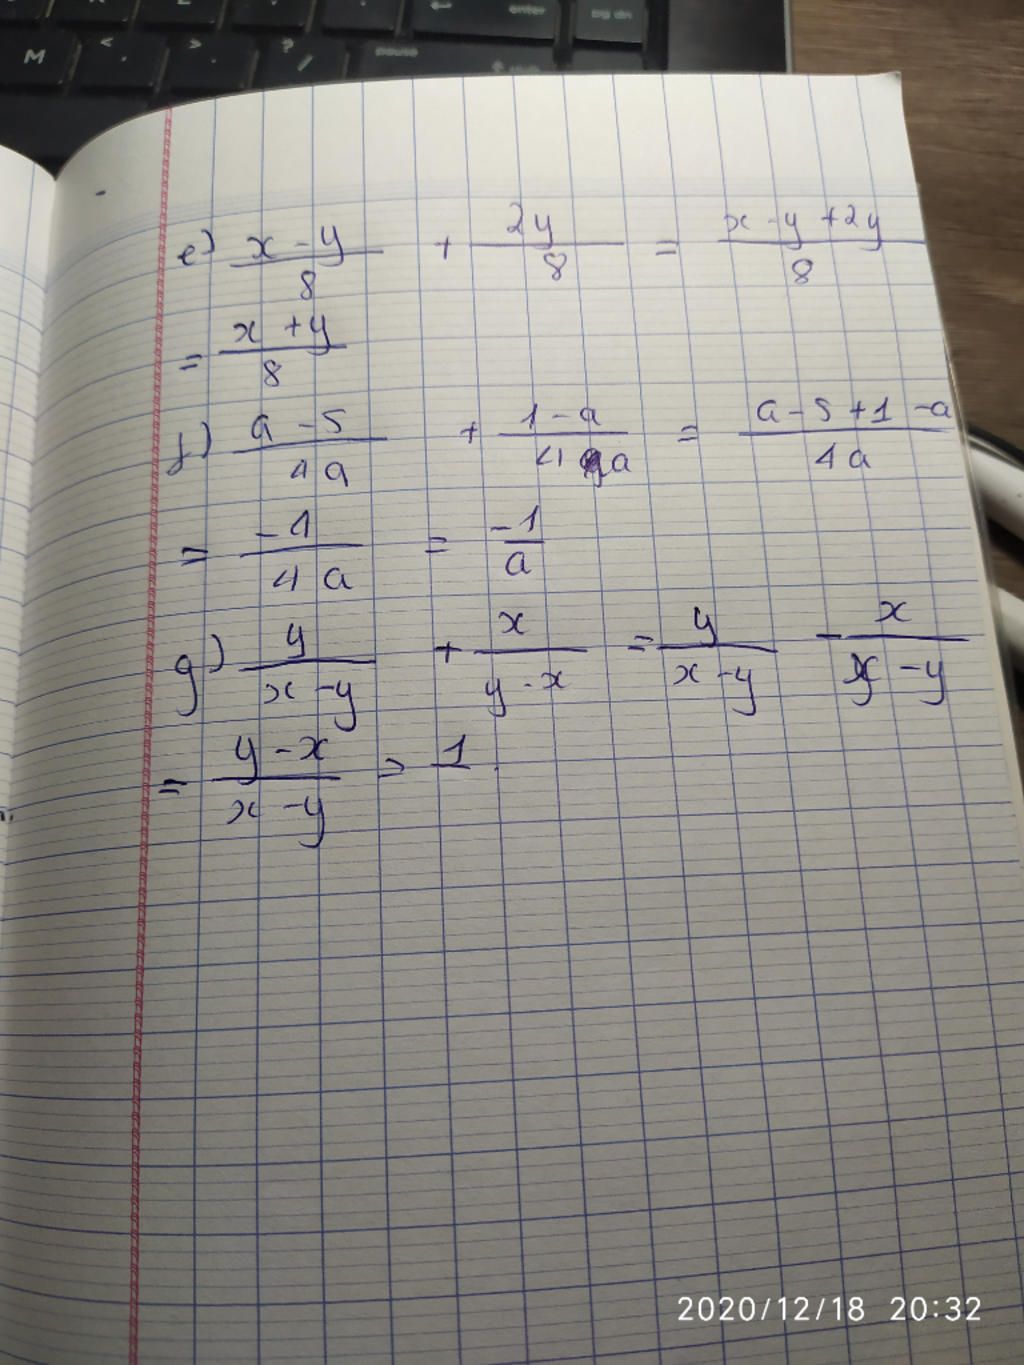 M < > ? / pause shift
enter pg dn
e) x - y / 8 + 2y / 8 = x - y + 2y / 8
= x + y / 8
f) a - 5 / 4a + 1 - a / 4a = a - 5 + 1 - a / 4a
= -4 / 4a = -1 / a
g) y / x - y + x / y - x = y / x - y - x / x - y
= y - x / x - y = 1
2020/12/18 20:32